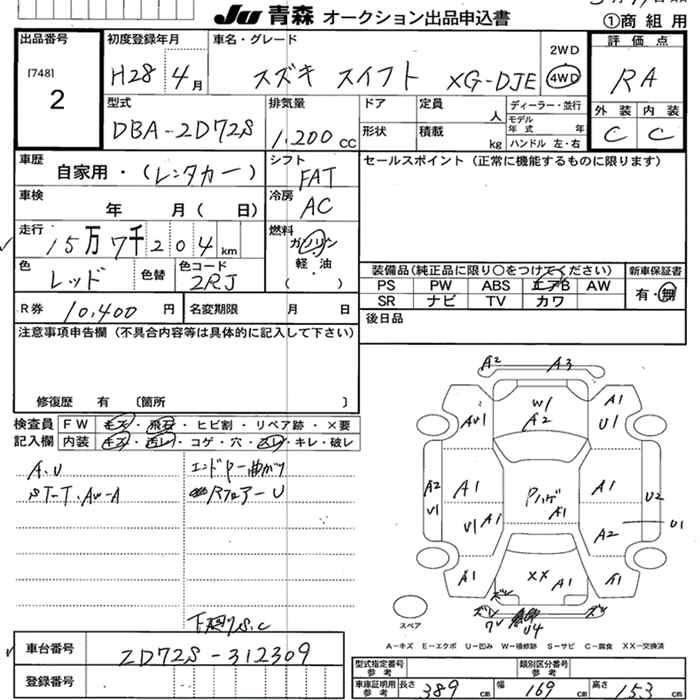 JU 青森 オークション出品申込書
①商組用
出品番号
[748]
2
初度登録年月
H28年4月
車名・グレード
スズキ スイフト XG-DJE
2WD
4WD
評価点
RA
外装 内装
C C
型式
DBA-ZD72S
排気量
1.200cc
ドア
形状
定員 人
積載 kg
ディーラー・並行
モデル年式 年
ハンドル 左・右
車歴
自家用・(レンタカー)
シフト
FAT
セールスポイント(正常に機能するものに限ります)
車検
年 月(日)
冷房
AC
走行
15万7千204km
燃料
ガソリン
軽・油
( )
色
レッド
色替
色コード
ZRJ
装備品(純正品に限り○をつけてください)
PS PW ABS エアB AW
SR ナビ TV カワ
新車保証書
有・無
R券 10,400円
名変期限 月 日
後日品
注意事項申告欄(不具合内容等は具体的に記入して下さい)
修復歴 有 〔箇所 〕
検査員記入欄
FW キズ・飛石・ヒビ割・リペア跡・×要
内装 キズ・汚レ・コゲ・穴・スレ・キレ・破レ
A.U
エンドP-曲がり
T-T.AU-A
Rフロアー U
下廻りS.C
A2 A3
AU1 W1 A2 A1 U1
A2 U1 A1 Pハゲ A1 A1 U2
U1 A1 A2 U1
A1 XX A1 A1
ズレ
ズレ U4 ズレ
スペア
A-キズ E-エクボ U-凹み W-補修跡 S-サビ C-腐食 XX-交換済
車台番号
ZD72S-312309
登録番号
型式指定番号 参考
類別区分番号 参考
車庫証明用 参考
長さ 389cm 幅 169cm 高さ 153cm